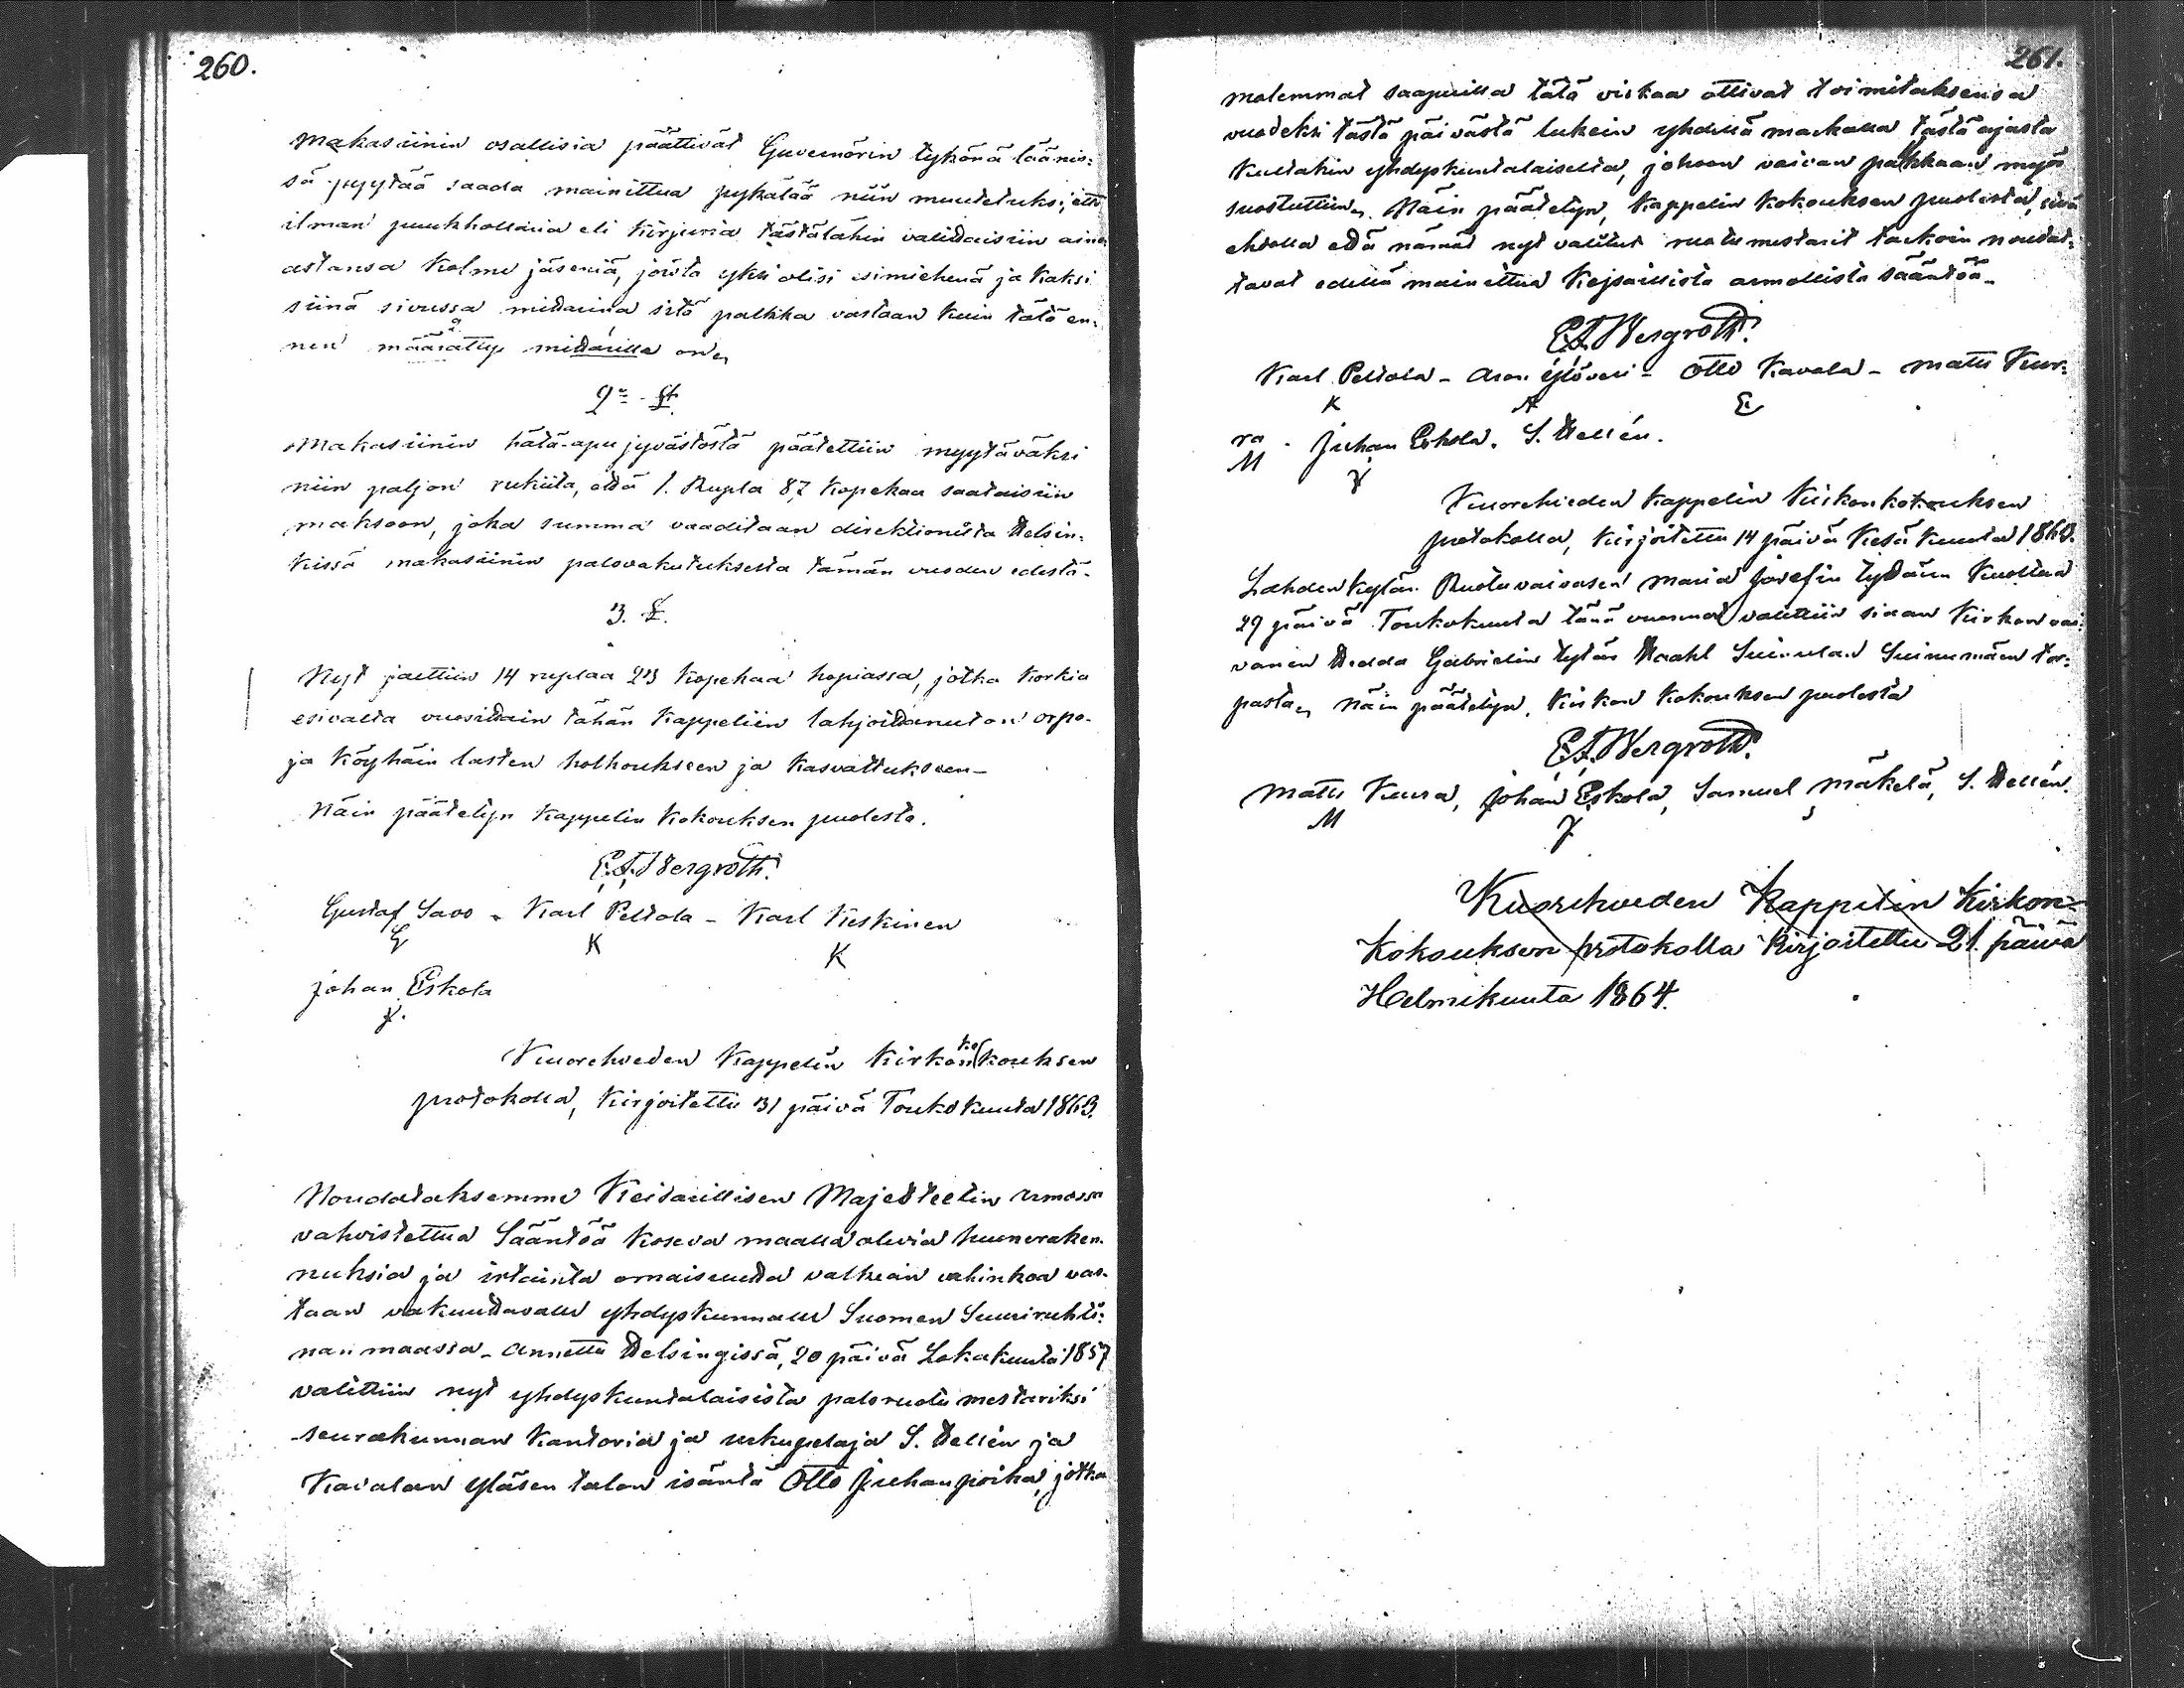 260.
Makasiinin osallisia päättivät Guvernörin tykönä läänis:
sä pyytää saada mainittua pykälää niin muutetuksi, että
ilman puukhollaria eli kirjuria tästälähin valittaisiin aino
astansa kolme jäseniä, joista yksi olisi esimiehenä ja kaksi
siinä sivussa mittarina sitä palkka vastaan kuin tätä en:
nen määrätty mittarilla on
2:n §.
Makasiinin hätä-apu jyvästöstä päätettiin myytäväksi
niin paljon rukiita, että 1. Rupla 87 kopekaa saataisiin
maksoon, joka summa vaaditaan direktionista Helsin:
kissä makasiinin palovakutuksesta tämän vuoden edestä.
3. §.
Nyt jaettiin 14 ruplaa 23 kopekaa hopiassa, jotka korkia
esivalta vuosittain tähän kappeliin lahjoittanut on orpo-
ja köyhäin lasten holhoukseen ja kasvattukseen-
Näin päätetyn kappelin kokouksen puolesta.
E.A. Bergroth.
Gustaf Savo - Karl Peltola - Karl Keskinen
G K K
Johan Eskola
J.
Kuorehveden Kappelin Kirkonkokouksen
protokolla, kirjoitettu 31 päivä Toukokuuta 1863.
Noudataksemme Keisarillisen Majesteetin armossa
vahvistettua Sääntöä koseva maalla olevia huoneraken.
nuksia ja irtainta omaisuutta valkean vahinkoa vas.
taan vakuuttavalle yhdyskunnalle Suomen Suuriruhti:
nanmaassa - annettu Helsingissä, 20 päivä Lokakuuta 1857
valittiin nyt yhdyskuntalaisista paloruotu mestariksi
seurakunnan kantoria ja urkupelaja S. Hellén ja
Kavalan yläsen talon isäntä Otto Juhanpoika, jotka
261.
molemmat saapuilla tätä virkaa ottivat toimitaksensa
vuodeksi tästä päivästä lukein yhdellä markalla tästä ajasta
kultakin yhdyskuntalaiselta, johoon vaivan palkkaan myös
suostuttiin. Näin päätetyn, kappelin kokouksen puolesta, sillä
ehdolla että nämät nyt valitut ruotumestarit tarkoin noudat:
tavat edellä mainittua Keisarillista armollista sääntöä-
E.A. Bergroth.
Karl Peltola - Aron Ylöveri - Otto Kavala - Matts Kuu:
K A E
ra - Juhan Eskola. S. Hellén.
M J
Kuorehveden Kappelin Kirkonkokouksen
protokolla, kirjoitettu 14 päivä Kesäkuuta 1863.
Lahdenkylän Ruotuvaivasen Maria Josefin tyttären kuoltua
29 päivä Toukokuuta tänä vuonna valittiin siaan kirkon vai:
vanen Hedda Gabrielin tytär Stoahl Suinulan Suinumäen tor:
pasta, näin päätetyn, kirkon kokouksen puolesta
E.A. Bergroth.
Matts Kuura, Johan Eskola, Samuel Mäkelä, S. Hellén.
M J S
Kuorehveden Kappelin Kirkon-
kokouksen protokolla kirjoitettu 21. päivä
Helmikuuta 1864.